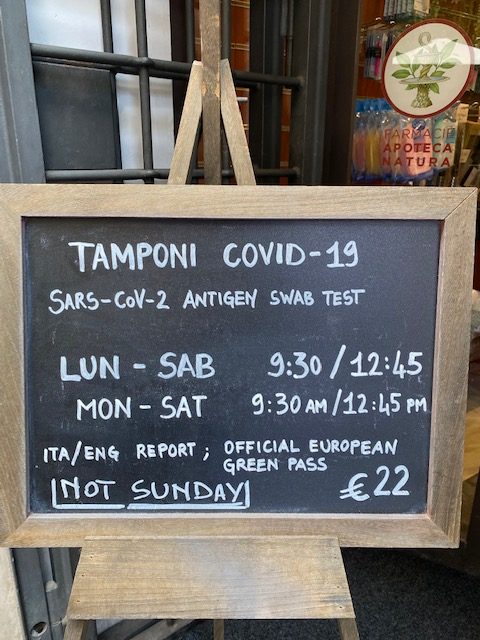 FARMACIE
APOTECA
NATURA
TAMPONI COVID-19
SARS-CoV-2 ANTIGEN SWAB TEST
LUN - SAB 9:30 / 12:45
MON - SAT 9:30 AM / 12:45 PM
ITA/ENG REPORT ; OFFICIAL EUROPEAN
GREEN PASS
NOT SUNDAY €22